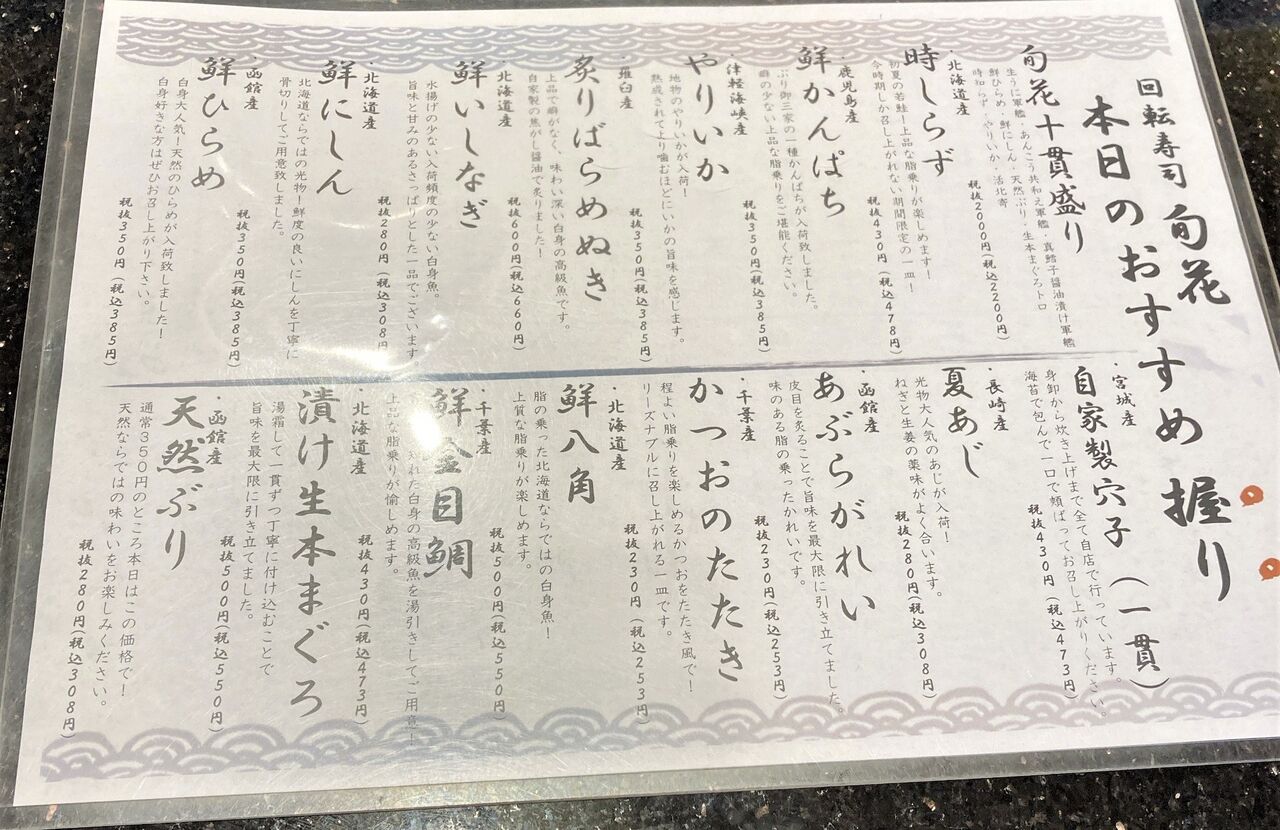 回転寿司 旬花
本日のおすすめ 握り
旬花十貫盛り
生うに軍艦・あんこう共和え軍艦・真鱈子醤油漬け軍艦
鮮ひらめ・鮮にしん・天然ぶり・生本まぐろトロ
時知らず・やりいか・活北寄
税抜2000円(税込2200円)
・北海道産
時しらず
初夏の若鮭!上品な脂乗りが楽しめます!
今時期しか召し上がれない期間限定の一皿!
税抜430円(税込478円)
・鹿児島産
鮮かんぱち
ぶり御三家の一種かんぱちが入荷致しました。
癖の少ない上品な脂乗りをご堪能ください。
税抜350円(税込385円)
・津軽海峡産
やりいか
地物のやりいかが入荷!
熟成されてより噛むほどにいかの旨味を感じます。
税抜350円(税込385円)
・羅臼産
炙りばらめぬき
上品で癖がなく、味わい深い白身の高級魚です。
自家製の焦がし醤油で炙りました!
税抜600円(税込660円)
・北海道産
鮮いしなぎ
水揚げの少ない入荷頻度の少ない白身魚。
旨味と甘みのあるさっぱりとした一品でございます
税抜280円(税込308円)
・北海道産
鮮にしん
北海道ならではの光物!鮮度の良いにしんを丁寧に
骨切りしてご用意致しました。
税抜350円(税込385円)
・函館産
鮮ひらめ
白身大人気!天然のひらめが入荷致しました!
白身好きな方はぜひお召し上がり下さい。
税抜350円(税込385円)
・宮城産
自家製穴子(一貫)
身卸から炊き上げまで全て自店で行っています。
海苔で包んで一口で頬ばってお召し上がりください。
税抜430円(税込473円)
・長崎産
夏あじ
光物大人気のあじが入荷!
ねぎと生姜の薬味がよく合います。
税抜280円(税込308円)
・函館産
あぶらがれい
皮目を炙ることで旨味を最大限に引き立てました。
味のある脂の乗ったかれいです。
税抜230円(税込253円)
・千葉産
かつおのたたき
程よい脂乗りを楽しめるかつおをたたき風で!
リーズナブルに召し上がれる一皿です。
税抜230円(税込253円)
・北海道産
鮮八角
脂の乗った北海道ならではの白身魚!
上質な脂乗りが楽しめます。
税抜500円(税込550円)
・千葉産
鮮金目鯛
れた白身の高級魚を湯引きしてご用意!
上品な脂乗りが愉しめます。
税抜430円(税込473円)
北海道産
漬け生本まぐろ
湯霜して一貫ずつ丁寧に付け込むことで
旨味を最大限に引き立てました。
税抜500円(税込550円)
・函館産
天然ぶり
通常350円のところ本日はこの価格で!
天然ならではの味わいをお楽しみください。
税抜280円(税込308円)